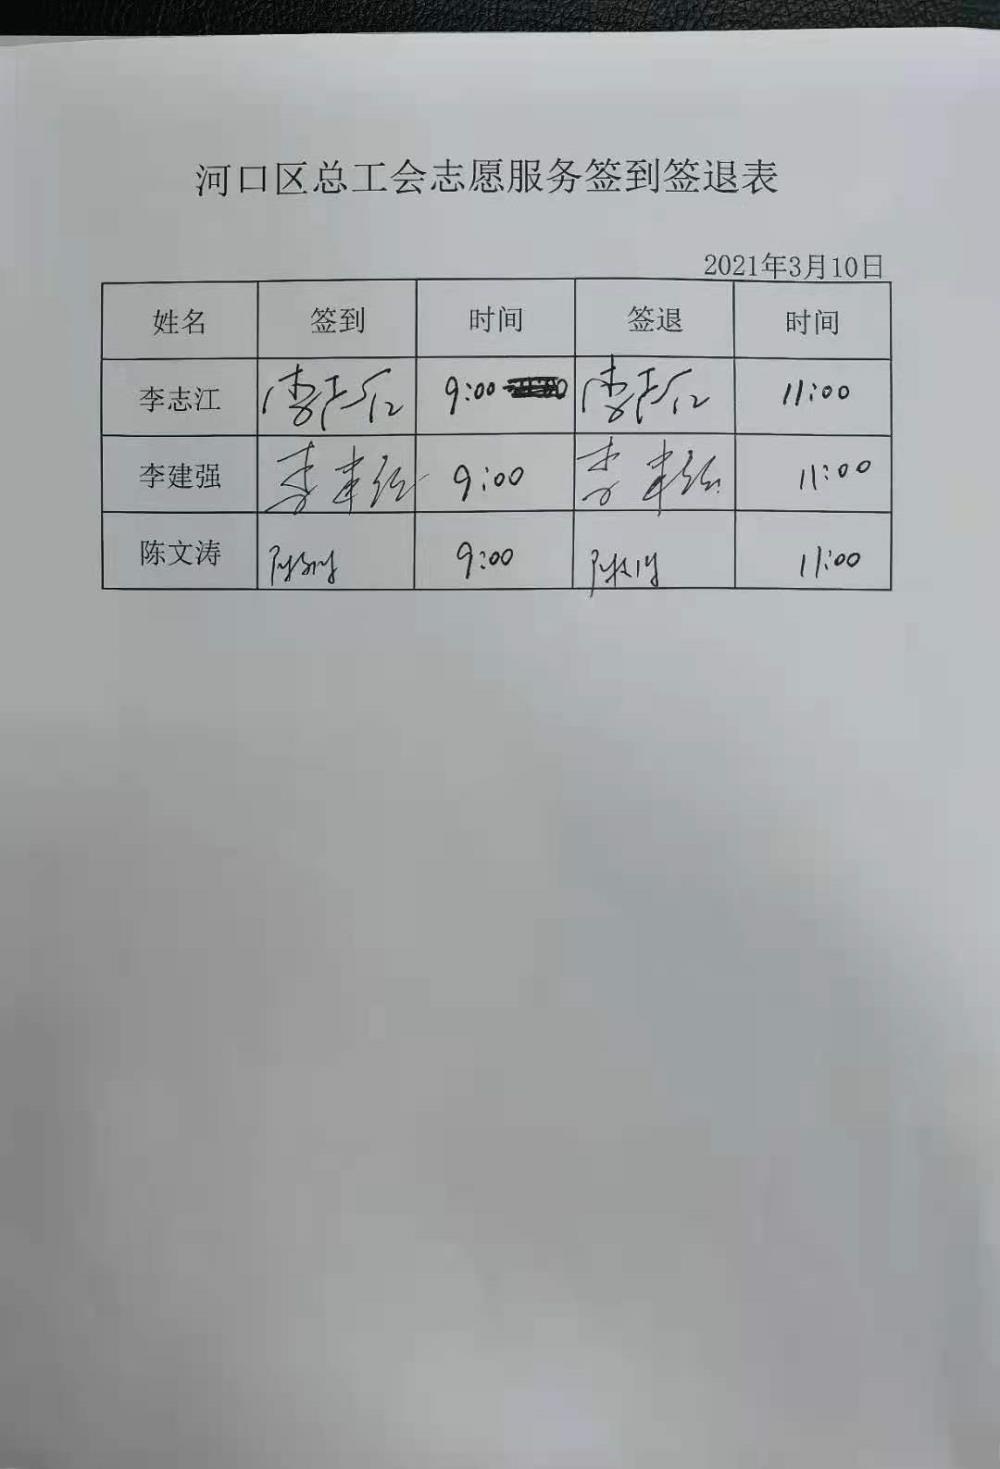 河口区总工会志愿服务签到签退表
2021年3月10日
姓名 签到 时间 签退 时间
李志江 李志江 9:00 李志江 11:00
李建强 李建强 9:00 李建强 11:00
陈文涛 9:00 11:00